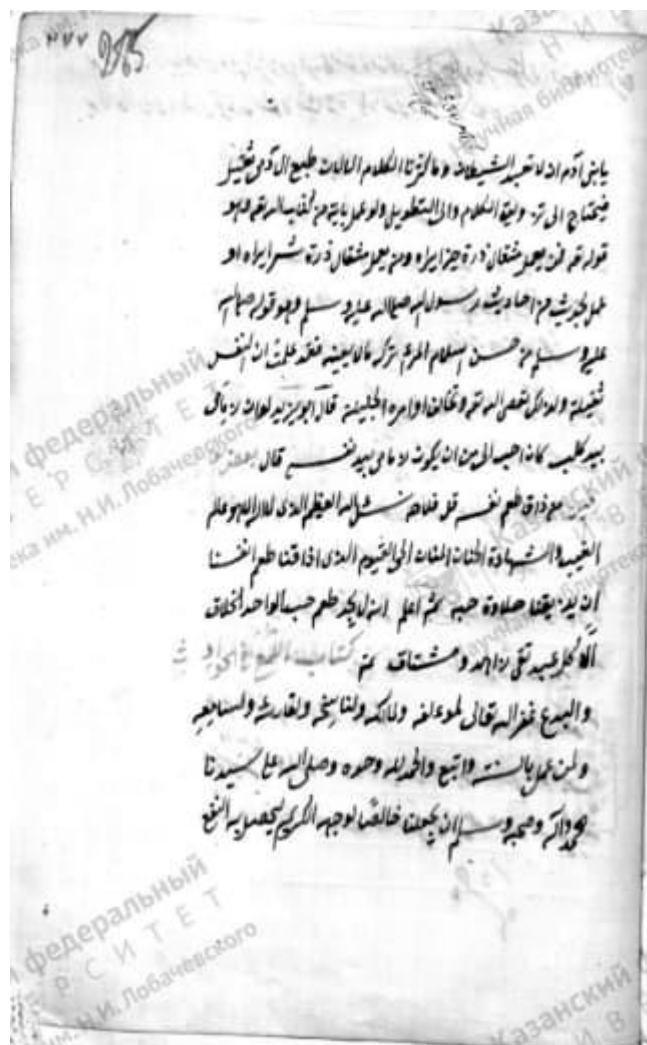 ٢٧٧
يا بنى آدم ان لا تعبدوا الشيطان وما كثرنا الكلام الا لان طبع الآدمى ثقيل
فيحتاج الى ترويق الكلام والى التطويل ولو عمل باية من كتاب الله تعـ وهو
قوله تعـ فمن يعمل مثقال ذرة خيرا يراه ومن يعمل مثقال ذرة شرا يراه او
عمل بحديث من احاديث رسول الله صلى الله عليه وسلم وهو قوله صلى الله
عليه وسلم من حسن اسلام المرء تركه ما لا يعنيه فقد علمت ان النفس
ثقيلة ولذلك تعصى الله تعـ وتخالف اوامره الجليلة قال ابو يزيد لو ان زمامى
بيد كلب كان احب الى من ان يكون زمامى بيد نفسـى قال بعضهم
من ذاق طعم نفسه قل فلاحه نسئل الله العظيم الذى لا اله الا هو عالم
الغيب والشهادة الحنان المنان الحى القيوم الذى اذاقنا طعم انفسنا
ان يذيقنا حلاوة حبه ثم اعلم انه لا يجد طعم حب الواحد الخلاق
الا كل عبد تقى زاهد ومشتاق تم كتاب اللمع فى الحوادث
والبدع غفر الله تعالى لمؤلفه ولمالكه ولناسخه ولقارئه ولسامعه
ولمن عمل بالسنة واتبع والحمد لله وحده وصلى الله على سيدنا
محمد وآله وصحبه وسلم ان يجعلنا خالصا لوجهه الكريم ليحصل به النفع